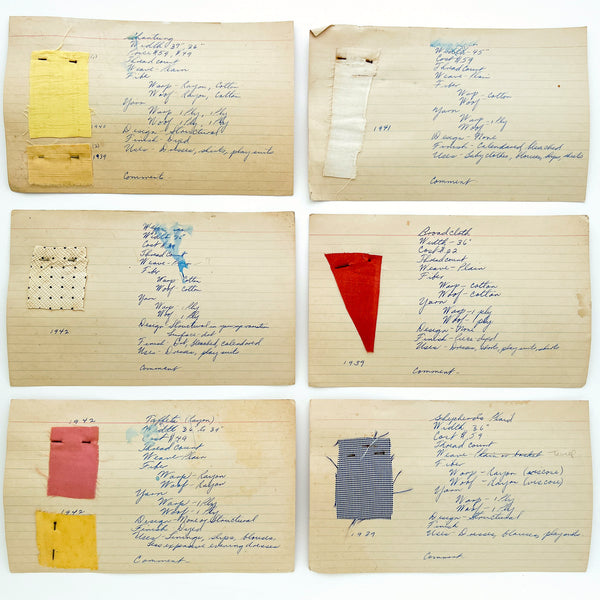 Shantung
Width 39", 36"
Cost $.59, $.49
Thread count
Weave - Plain
Fiber
Warp - Rayon, Cotton
Woof - Rayon, Cotton
Yarn
Warp 1 Ply, 1 Ply
Woof 1 Ply, 1 Ply
Design - Structural
Finish - Dyed
Uses - Dresses, shirts, play suits
Comment -
1939
Width - 45"
Cost $.59
Thread count
Weave - Plain
Fiber
Warp - Cotton
Woof
Yarn
Warp - 1 Ply
Woof
Design - None
Finish - Calendared, bleached
Uses - Babyclothes, blouses, slips, shirts
Comment
1941
Width
Cost
Thread Count
Weave - Plain
Fiber
Warp Cotton
Woof Cotton
Yarn
Warp - 1 Ply
Woof 1 Ply
Design Structural in
Surface - dot
Finish Dot, bleached, calendared
Uses - Dresses, play suits
Comment
1942
Broadcloth
Width - 36"
Cost $.22
Thread count
Weave - Plain
Fiber
Warp - cotton
Woof - cotton
Yarn
Warp - 1 ply
Woof - 1 ply
Design - None
Finish - Piece-dyed
Uses - Dresses, shorts, play suits, shirts
Comment -
1939
1942
1942
Taffeta (Rayon)
Width 36" to 39"
Cost $.49
Thread Count
Weave Plain
Fiber
Warp - Rayon
Woof - Rayon
Yarn
Warp - 1 Ply
Woof - 1 Ply
Design - None or Structural
Finish Dyed
Uses - Linings, slips, blouses,
less expensive evening dresses
Comment -
Shepherds Plaid
Width 36"
Cost $.59
Thread Count
Weave - Plain or basket
Fiber
Warp - Rayon (viscose)
Woof - Rayon (viscose)
Yarn
Warp - 1 Ply
Woof - 1 Ply
Design - Structural
Finish
Uses - Dresses, blouses,
Comment
1939